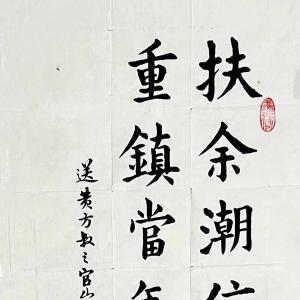 扶余潮信
重鎮當年
送黄方叔之官山